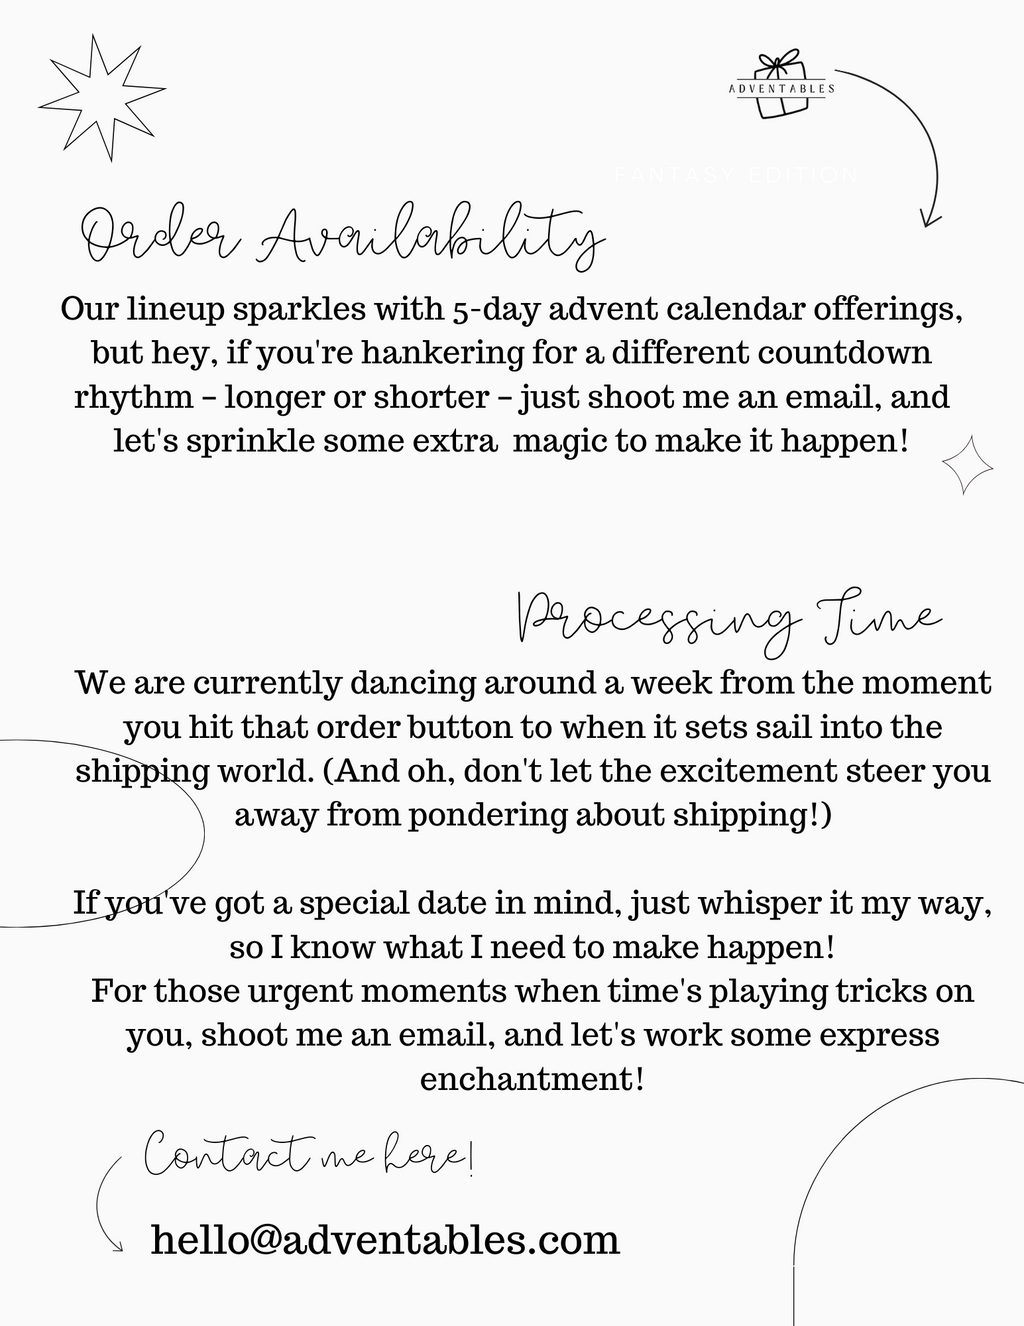 ADVENTABLES
FANTASY EDITION
Order Availability
Our lineup sparkles with 5-day advent calendar offerings,
but hey, if you're hankering for a different countdown
rhythm – longer or shorter – just shoot me an email, and
let's sprinkle some extra  magic to make it happen!
Processing Time
We are currently dancing around a week from the moment
you hit that order button to when it sets sail into the
shipping world. (And oh, don't let the excitement steer you
away from pondering about shipping!)
If you've got a special date in mind, just whisper it my way,
so I know what I need to make happen!
For those urgent moments when time's playing tricks on
you, shoot me an email, and let's work some express
enchantment!
Contact me here!
hello@adventables.com